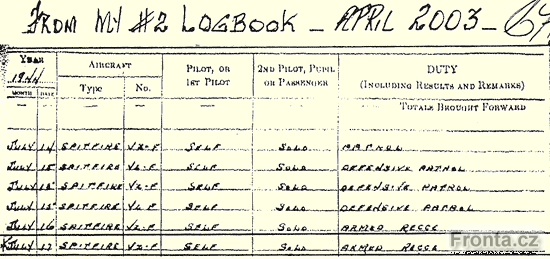 FROM MY #2 LOGBOOK - APRIL 2003 -
YEAR AIRCRAFT PILOT, OR 2ND PILOT, PUPIL DUTY
1944 1ST PILOT OR PASSENGER (INCLUDING RESULTS AND REMARKS)
MONTH DATE Type No.
— — — — — — TOTALS BROUGHT FORWARD
JULY 14 SPITFIRE VZ-F SELF SOLO PATROL
JULY 15 SPITFIRE VZ-F SELF SOLO DEFENSIVE PATROL
JULY 15 SPITFIRE VZ-F SELF SOLO DEFENSIVE PATROL
JULY 15 SPITFIRE VZ F SELF SOLO DEFENSIVE PATROL
JULY 16 SPITFIRE VZ-F SELF SOLO ARMED RECCE
JULY 17 SPITFIRE VZ-F SELF SOLO ARMED RECCE
Fronta.cz